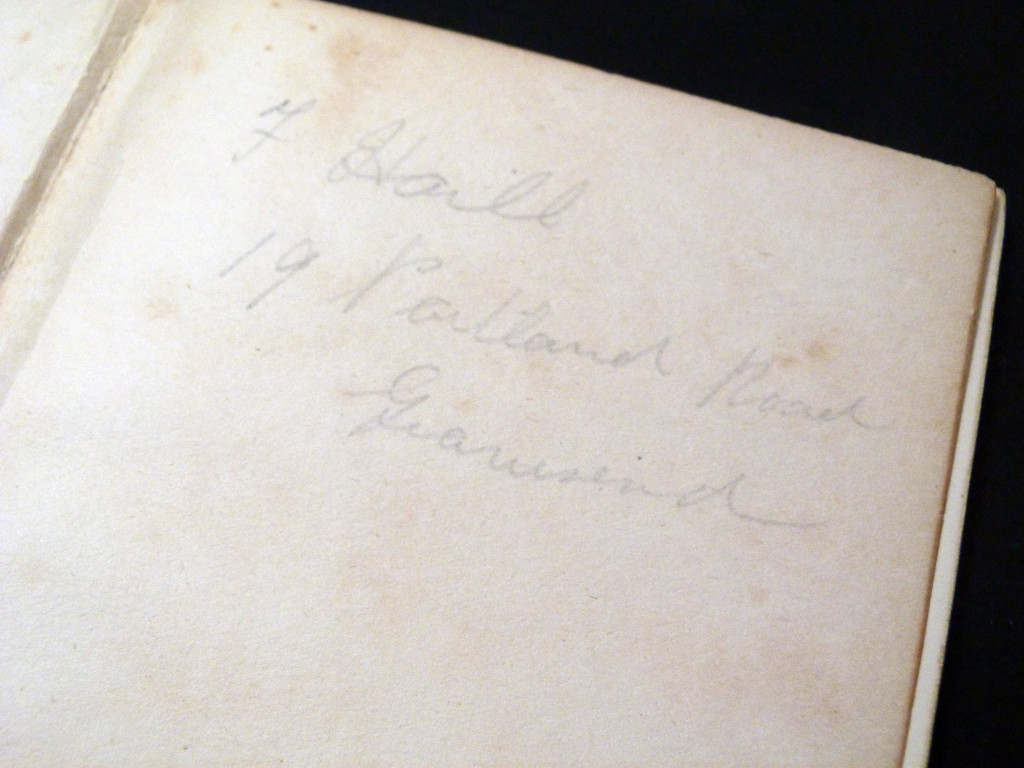 F Haill
19 Portland Road
Gravesend